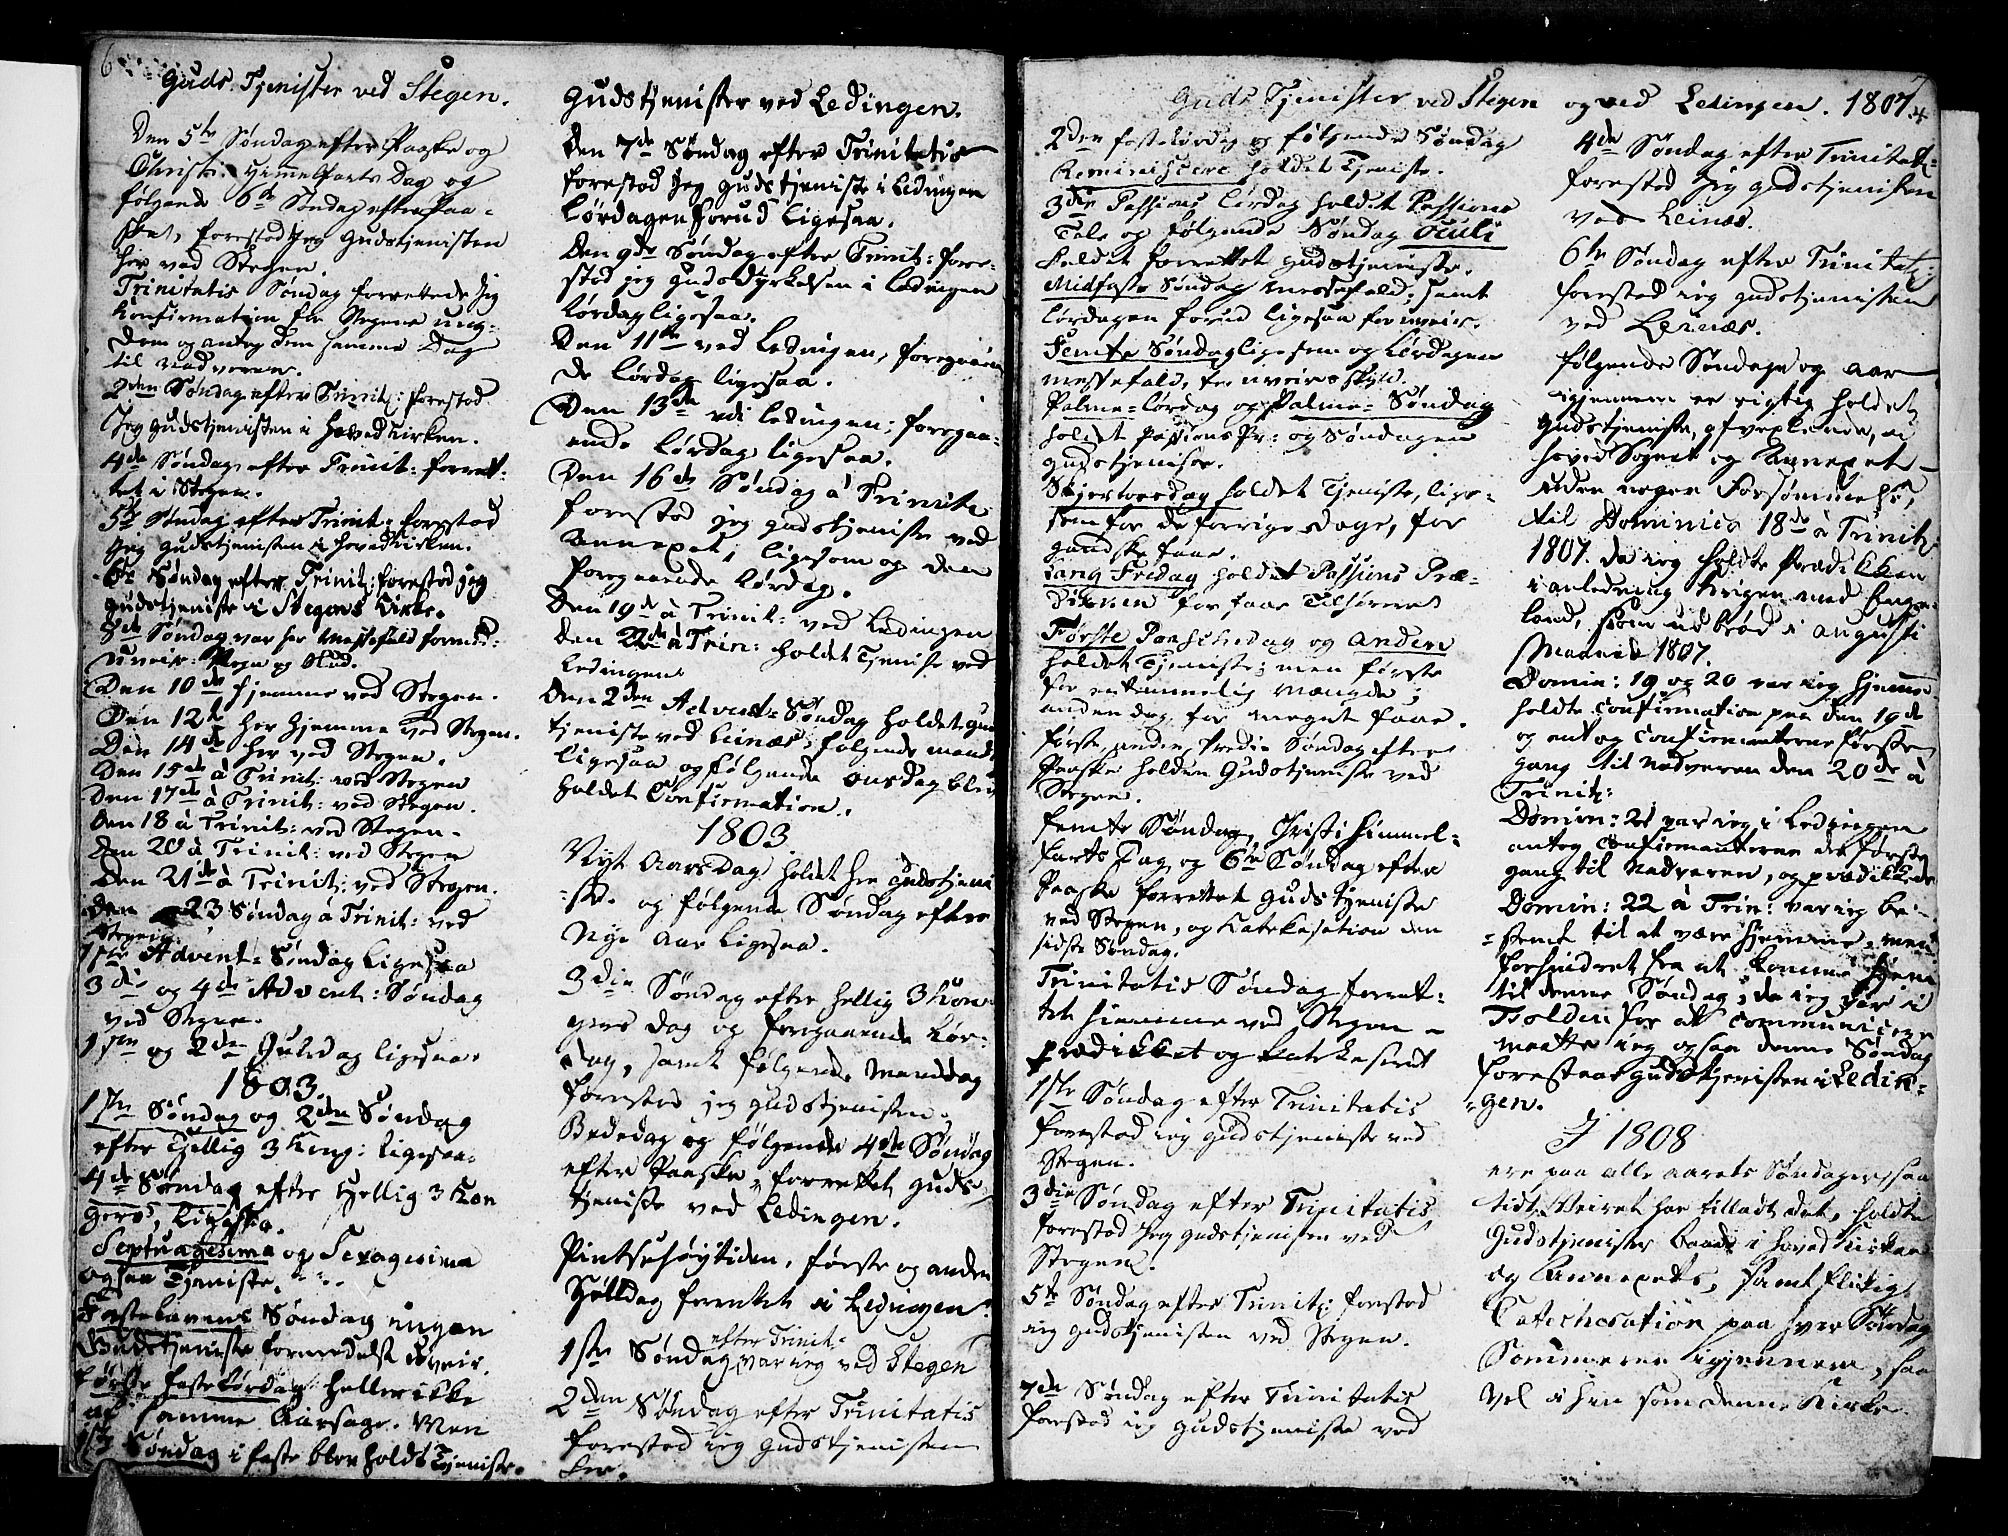 6
Guds Tjenister ved Stegen.
Den 5te Søndag efter Paaske og
Christi Himelfarts Dag og
følgende 6te Søndag efter Paa-
ske, forestod Jeg Gudstjenisten
her ved Stegen.
Trinitatis Søndag forrettede Jeg
Confirmation for Stegens ung-
dom og antog dem samme Dag
til Nadveren.
2den Søndag efter Trinit: forestod
Jeg Gudstjenisten i Hovedkirken.
4de Søndag efter Trinit: forret-
tet i Stegen.
5te Søndag efter Trinit: forestod
Jeg Gudstjenisten i Hovedkirken.
6te Søndag efter Trinit: forestod jeg
Gudstjeniste i Stegens Kirke.
8de Søndag var her Messefald formed:
Uveir: Regn og Slud.
Den 10de hjemme ved Stegen.
Den 12te her hjemme ved Stegen.
Den 14de her ved Stegen.
Den 15de à Trinit: ved Stegen
Den 17de à Trinit: ved Stegen.
Den 18 à Trinit: ved Stegen.
Den 20 à Trinit: ved Stegen
Den 21de à Trinit: ved Stegen.
Den 23 Søndag à Trinit: ved
Stegen.
1ste Advent-Søndag ligesaa
3die og 4de Advent: Søndag
ved Stegen.
1ste og 2den Juledag ligesaa.
1803.
1ste Søndag og 2den Søndag
efter Hellig 3 Kong: ligesaa.
4de Søndag efter Hellig 3 Kon
gers, ligesaa.
Septuagesima og Sexagesima
ogsaa Tjeniste.
Fastelavens Søndag ingen
Gudstjeniste formedelst Uveir.
Første Fastelørdag heller ikke
af samme Aarsage. Men
1ste Søndag i Faste blev holdt Tjeniste.
Gudstjenister ved Ledingen.
Den 7de Søndag efter Trinitatis
forestod Jeg Gudstjeniste i Ledingen
Lørdagen forud ligesaa.
Den 9de Søndag efter Trinit: fore-
stod jeg Gudsdyrkelsen i Ledingen
Lørdag ligesaa.
Den 11te ved Ledingen, foregaaen
de Lørdag ligesaa.
Den 13de udi Ledingen: foregaa-
ende Lørdag ligesaa.
Den 16de Søndag à Trinit:
forestod jeg Gudstjeniste ved
Annexet, ligesom og den
foregaaende Lørdag.
Den 19de à Trinit: ved Ledingen
Den 22de à Trin: holdet Tjeniste ved
Ledingen
Den 2den Advent-Søndag holdet Gud
tjeniste ved Leinæs, følgende Mand
ligesaa og følgende Onsdag blev
holdet Confirmation.
1803
Nyt Aars Dag holdet her Gudstjeni
ste. og følgende Søndag efter
Nye Aar ligesaa.
3die Søndag efter Hellig 3 Kon
gers Dag og foregaaende Lør-
dag, samt følgende Manddag
forestod jeg Gudstjenisten.
Bededag og følgende 4de Søndag
efter Paaske, forrettet Guds
tjeniste ved Ledingen.
Pintsehøytiden, første og anden
Helldag forrettet i Ledingen.
1ste Søndag efter Trinit: var jeg ved Stegen
2den Søndag efter Trinitatis
forestod jeg Gudstjenisten
her.
7
Guds Tjenister ved Stegen og ved Ledingen. 1807.
2den Fastelørdag og følgende Søndag
Reminiscere holdet Tjeniste.
3die Passions Lørdag holdet Passions
Tale og følgende Søndag Oculi
holdet forrettet Gudstjeniste.
Midfaste Søndag Messefald; samt
Lørdagen forud ligesaa for uveir.
Femte Søndag ligesom og Lørdagen
messefald, for uveirs skyld.
Palme-Lørdag og Palme-Søndag
holdet Passions Pr: og Søndagen
Gudstjeniste.
Skjertorsdag holdet Tjeniste, lige-
som for de forrige Dage, for
gandske faae.
Lang Fredag holdet Passions Præ-
diken for faae Tilhørere
Første Paaschedag og anden
holdet Tjeniste; men første
for en temmelig Mængde;
anden Dag, for meget faae.
Første, anden, tredie Søndag efter
Paaske holden Gudstjeniste ved
Stegen.
Femte Søndag, Christi Himmel-
farts Dag og 6te Søndag efter
Paaske forrettet Guds tjeniste
ved Stegen, og Katekisation den
sidste Søndag.
Trinitatis Søndag forret-
tet hjemme ved Stegen -
prædikket og katekiseret
1ste Søndag efter Trinitatis
forestod jeg Gudstjeniste ved
Stegen.
3die Søndag efter Trinitatis
forestod Jeg Gudstjenisten ved
Stegen.
5te Søndag efter Trinit: forestod
jeg Gudstjenisten ved Stegen.
7de Søndag efter Trinitatis
forestod jeg Gudstjeniste ved
4de Søndag efter Trinitat:
forestod Jeg Gudstjenisten
ved Leinæs.
6te Søndag efter Trinitat:
forestod jeg Gudstjenisten
ved Leinæs.
Følgende Søndage og Aar
igjennem er rigtig holdet
Gudstjeniste, afvexlende, ved
Hoved Sognet og Annexet
uden nogen Forsømmelse,
til Dominica 18de à Trinit:
1807. da jeg holdte Prædikken
i anledning Krigen med Enge-
land, som udbrød i Augusti
Maaned 1807.
Domin: 19 og 20 var jeg hjemme
holdte Confirmation paa den 19de
og antog Confirmanterne første
gang til Nadveren den 20de à
Trinit:
Domin: 21 var jeg i Ledingen
antog Confirmanterne der første
gang til Nadveren, og prædikkede
Domin: 22 à Trin: var jeg be-
-stemt til at være hjemme, men
forhindret fra at komme hjem
til denne Søndag; da jeg var i
Folden for at communicere
maatte jeg ogsaa denne Søndag
forestaae Gudstjenisten i Ledin-
-gen.
I 1808
ere paa alle Aarets Søndager, saa
tidt Veiret har tilladt det, holdte
Gudstjenister baade i Hoved Kirken
og Annexets, samt flittig
Catechesation paa hver Søndag
Sommeren igjennem, saa
vel i hin som denne Kirke.